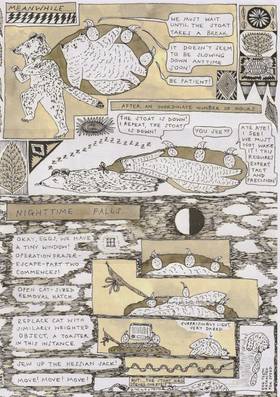 MEANWHILE
WE MUST WAIT
UNTIL THE STOAT
TAKES A BREAK
IT DOESN'T SEEM
TO BE SLOWING
DOWN ANYTIME
SOON!
BE PATIENT!
AFTER AN INORDINATE NUMBER OF HOURS
THE STOAT IS DOWN!
I REPEAT, THE STOAT
IS DOWN!
YOU SEE??
AYE AYE!
I SEE!
WE MUST
NOT WAKE
IT! THIS
REQUIRES
EXPERT
TACT AND
PRECISION
NIGHTTIME FALLS
OKAY, EGGS, WE HAVE
A TINY WINDOW!
OPERATION DRAZER-
ESCAPE-PART TWO
COMMENCES!
OPEN CAT-SIZED
REMOVAL HATCH
REPLACE CAT WITH
SIMILARLY WEIGHTED
OBJECT, A TOASTER
IN THIS INSTANCE
SURPRISINGLY LIGHT,
VERY
SEW UP THE HESSIAN SACK!
MOVE! MOVE! MOVE!
BUT THE STOAT HAS